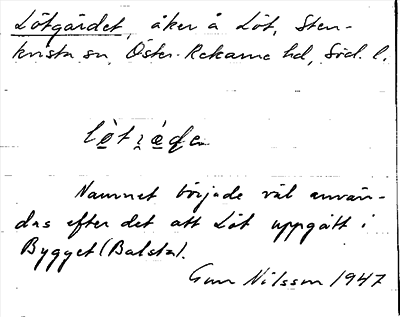 Lötgärdet, åker å Löt, Sten-
kvista sn, Öster-Rekarne hd, Söd. l.
Namnet började väl använ-
das efter det att Löt uppgått i
Bygget (Balsta).
Gun Nilsson 1947